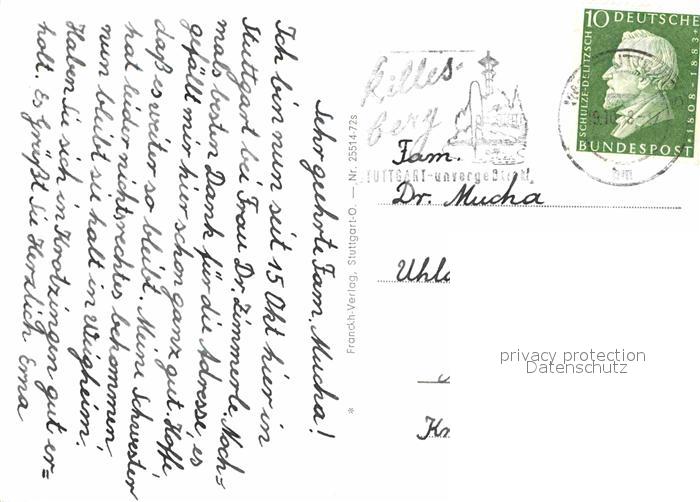 Sehr geehrte Fam. Mucha!
Ich bin nun seit 15 Okt hier in
Stuttgart bei Frau Dr. Zimmerle. Noch-
mals besten Dank für die Adresse, es
gefällt mir hier schon ganz gut. Hoffe
daß es weiter so bleibt. Meine Schwester
hat leider nichts rechtes bekommen
nun bleibt sie halt in Weigheim.
Haben Sie sich in Krotzingen gut er=
holt. Es grüßt Sie Herzlich Erna
Franckh-Verlag, Stuttgart-O. — Nr. 25514-72s
*
Killes-
berg
STUTTGART-unvergeßlich!
10 DEUTSCHE
SCHULZE-DELITZSCH
1808 · 1883
BUNDESPOST
Fam.
Dr. Mucha
Uhla
Kr
privacy protection
Datenschutz